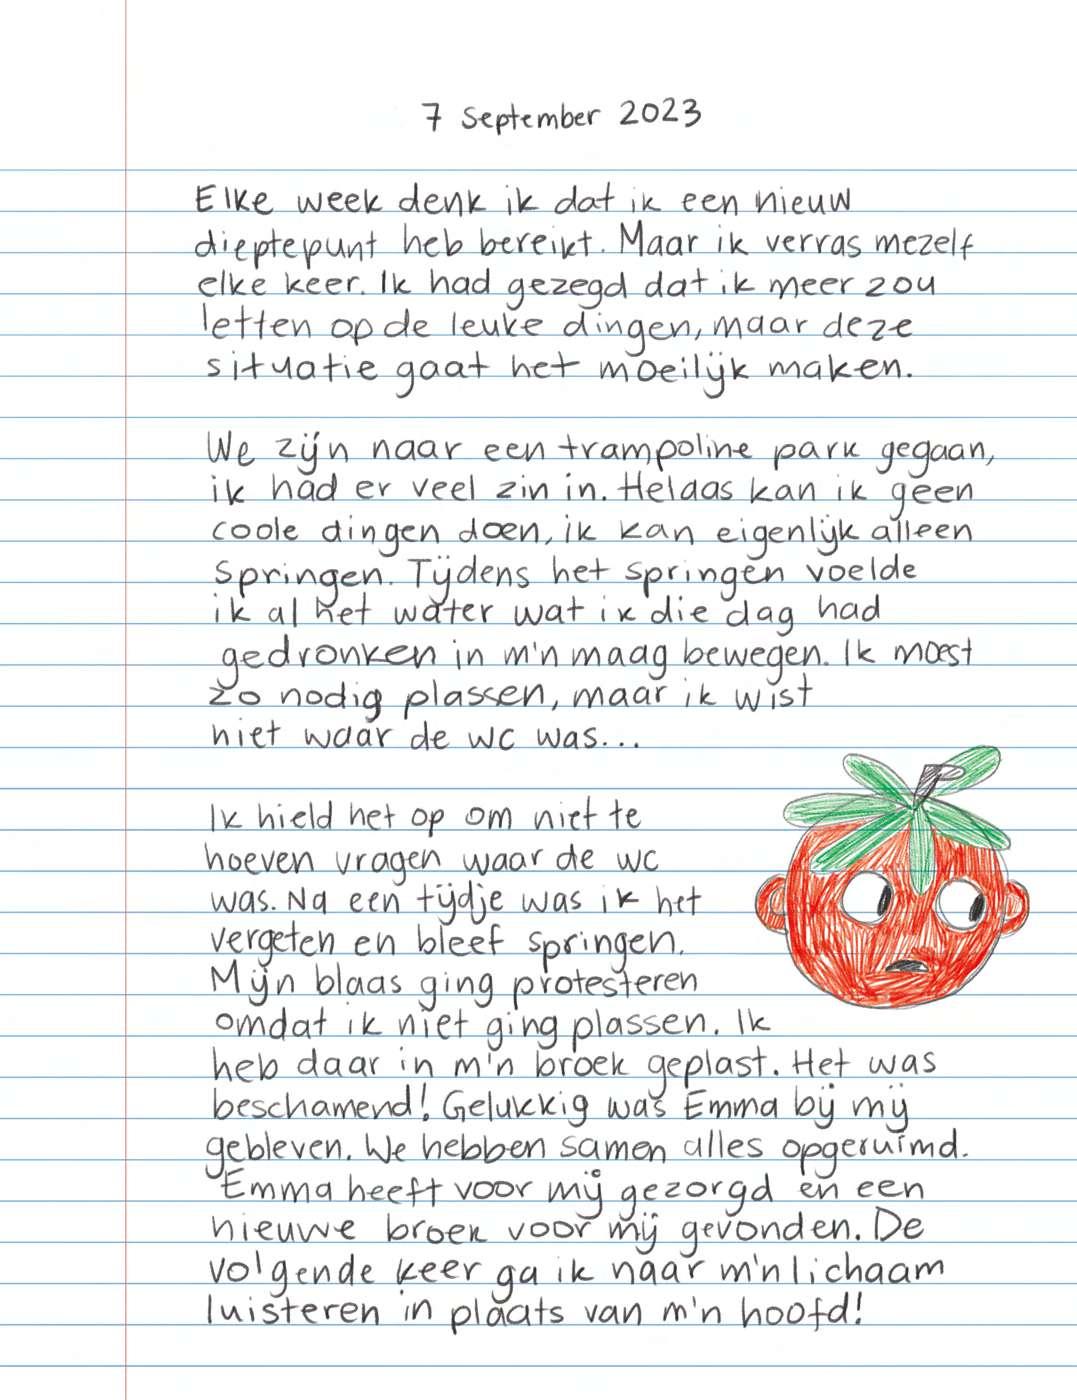 7 september 2023
Elke week denk ik dat ik een nieuw
dieptepunt heb bereikt. Maar ik verras mezelf
elke keer. Ik had gezegd dat ik meer zou
letten op de leuke dingen, maar deze
situatie gaat het moeilijk maken.
We zijn naar een trampoline park gegaan,
ik had er veel zin in. Helaas kan ik geen
coole dingen doen, ik kan eigenlijk alleen
springen. Tijdens het springen voelde
ik al het water wat ik die dag had
gedronken in m'n maag bewegen. Ik moest
zo nodig plassen, maar ik wist
niet waar de wc was...
Ik hield het op om niet te
hoeven vragen waar de wc
was. Na een tijdje was ik het
vergeten en bleef springen.
Mijn blaas ging protesteren
omdat ik niet ging plassen. Ik
heb daar in m'n broek geplast. Het was
beschamend! Gelukkig was Emma bij mij
gebleven. We hebben samen alles opgeruimd.
Emma heeft voor mij gezorgd en een
nieuwe broek voor mij gevonden. De
volgende keer ga ik naar m'n lichaam
luisteren in plaats van m'n hoofd!